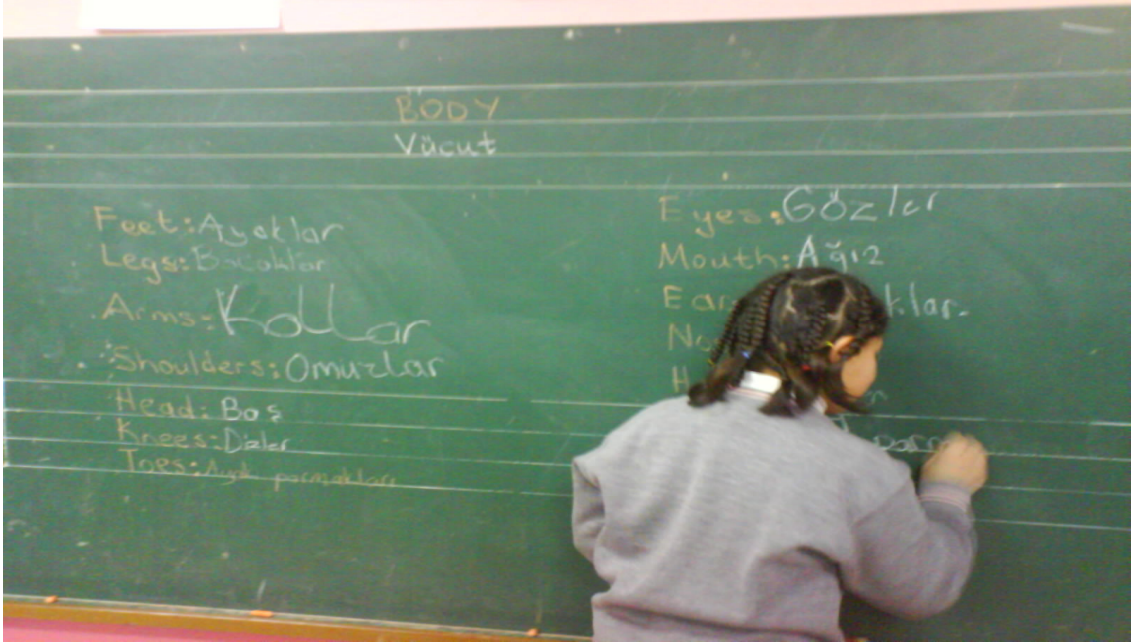 BODY
Vücut
Feet: Ayaklar
Legs: Bacaklar
Arms: Kollar
Shoulders: Omuzlar
Head: Baş
Knees: Dizler
Toes: Ayak parmakları
Eyes: Gözler
Mouth: Ağız